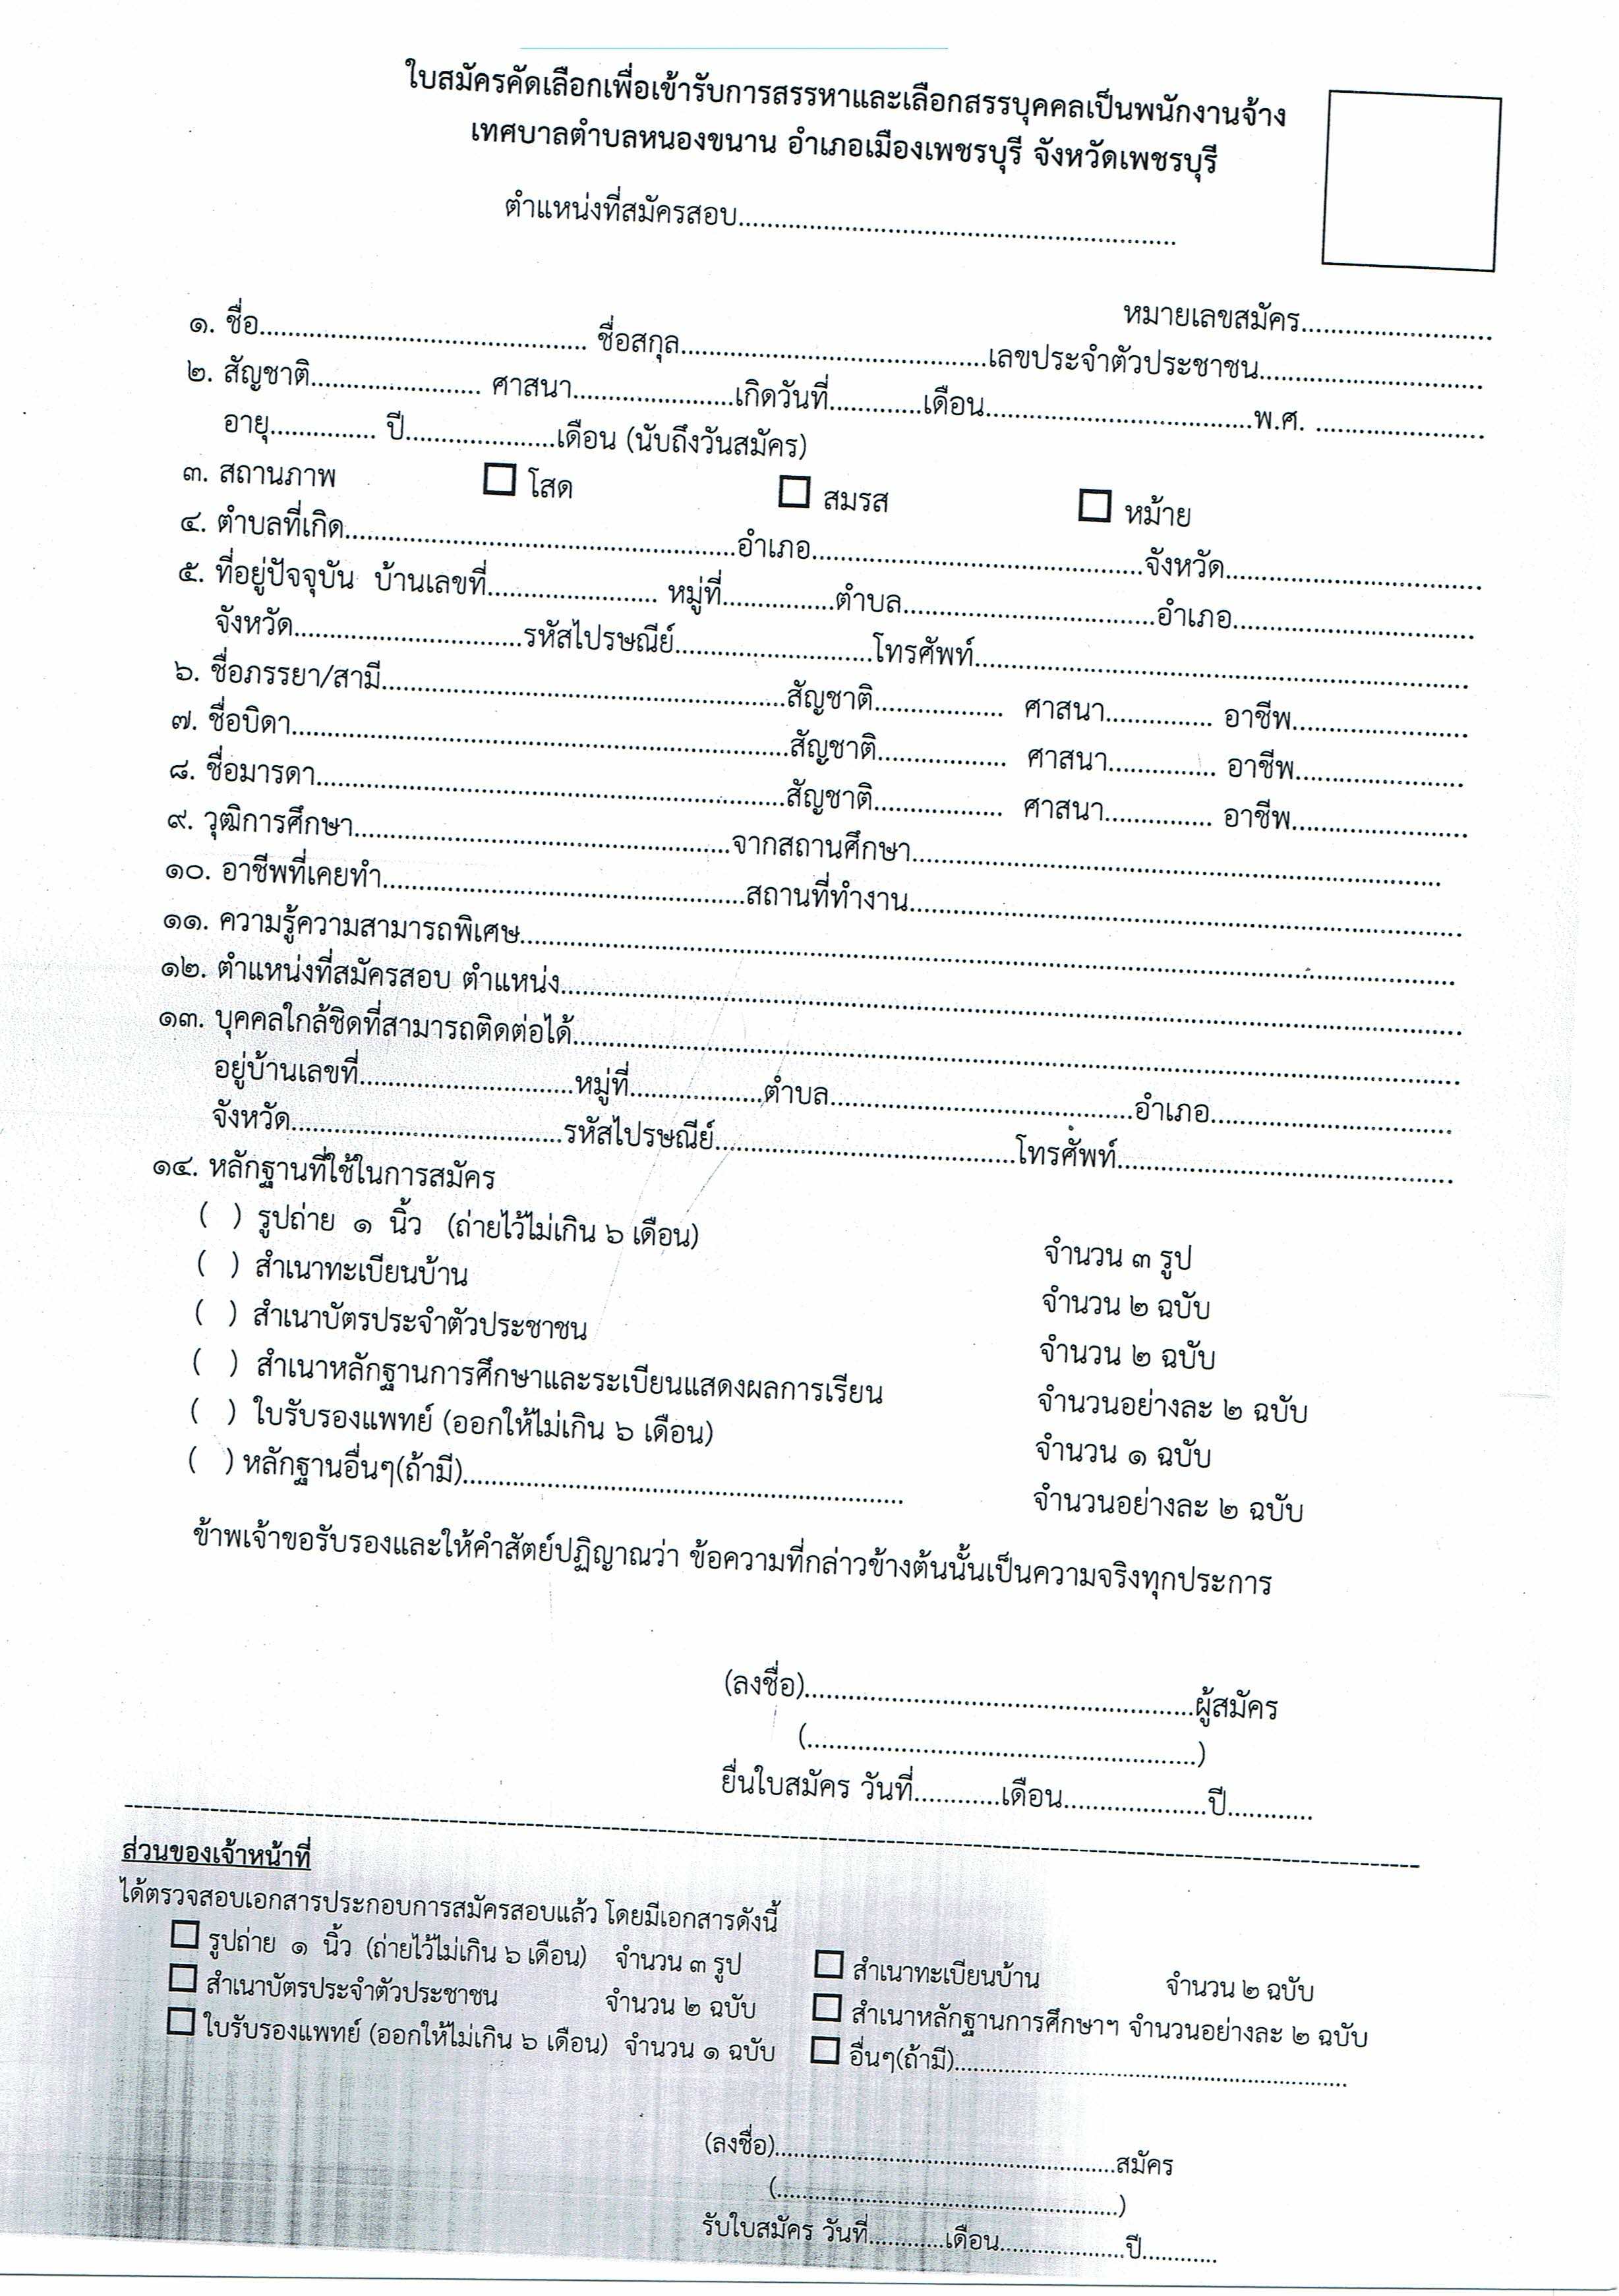 ใบสมัครคัดเลือกเพื่อเข้ารับการสรรหาและเลือกสรรบุคคลเป็นพนักงานจ้าง
เทศบาลตำบลหนองขนาน อำเภอเมืองเพชรบุรี จังหวัดเพชรบุรี
ตำแหน่งที่สมัครสอบ..........................................................
หมายเลขสมัคร..........................
๑. ชื่อ............................................. ชื่อสกุล..........................................เลขประจำตัวประชาชน..............................
๒. สัญชาติ....................... ศาสนา......................เกิดวันที่............เดือน....................................พ.ศ. .......................
อายุ.............. ปี....................เดือน (นับถึงวันสมัคร)
๓. สถานภาพ ☐ โสด ☐ สมรส ☐ หม้าย
๔. ตำบลที่เกิด.....................................................อำเภอ.............................................จังหวัด...................................
๕. ที่อยู่ปัจจุบัน บ้านเลขที่....................... หมู่ที่...............ตำบล..................................อำเภอ.................................
จังหวัด...............................รหัสไปรษณีย์...........................โทรศัพท์...................................................................
๖. ชื่อภรรยา/สามี.......................................................สัญชาติ................. ศาสนา.............. อาชีพ.......................
๗. ชื่อบิดา....................................................................สัญชาติ................. ศาสนา.............. อาชีพ.......................
๘. ชื่อมารดา................................................................สัญชาติ................. ศาสนา.............. อาชีพ.......................
๙. วุฒิการศึกษา...................................................จากสถานศึกษา........................................................................
๑๐. อาชีพที่เคยทำ.................................................สถานที่ทำงาน..........................................................................
๑๑. ความรู้ความสามารถพิเศษ...............................................................................................................................
๑๒. ตำแหน่งที่สมัครสอบ ตำแหน่ง..........................................................................................................................
๑๓. บุคคลใกล้ชิดที่สามารถติดต่อได้........................................................................................................................
อยู่บ้านเลขที่.............................หมู่ที่..................ตำบล.........................................อำเภอ.................................
จังหวัด.....................................รหัสไปรษณีย์.........................................โทรศัพท์..............................................
๑๔. หลักฐานที่ใช้ในการสมัคร
( ) รูปถ่าย ๑ นิ้ว (ถ่ายไว้ไม่เกิน ๖ เดือน) จำนวน ๓ รูป
( ) สำเนาทะเบียนบ้าน จำนวน ๒ ฉบับ
( ) สำเนาบัตรประจำตัวประชาชน จำนวน ๒ ฉบับ
( ) สำเนาหลักฐานการศึกษาและระเบียนแสดงผลการเรียน จำนวนอย่างละ ๒ ฉบับ
( ) ใบรับรองแพทย์ (ออกให้ไม่เกิน ๖ เดือน) จำนวน ๑ ฉบับ
( ) หลักฐานอื่นๆ(ถ้ามี)............................................................ จำนวนอย่างละ ๒ ฉบับ
ข้าพเจ้าขอรับรองและให้คำสัตย์ปฏิญาณว่า ข้อความที่กล่าวข้างต้นนั้นเป็นความจริงทุกประการ
(ลงชื่อ).....................................................ผู้สมัคร
(.....................................................)
ยื่นใบสมัคร วันที่............เดือน....................ปี............
ส่วนของเจ้าหน้าที่
ได้ตรวจสอบเอกสารประกอบการสมัครสอบแล้ว โดยมีเอกสารดังนี้
☐ รูปถ่าย ๑ นิ้ว (ถ่ายไว้ไม่เกิน ๖ เดือน) จำนวน ๓ รูป ☐ สำเนาทะเบียนบ้าน จำนวน ๒ ฉบับ
☐ สำเนาบัตรประจำตัวประชาชน จำนวน ๒ ฉบับ ☐ สำเนาหลักฐานการศึกษาฯ จำนวนอย่างละ ๒ ฉบับ
☐ ใบรับรองแพทย์ (ออกให้ไม่เกิน ๖ เดือน) จำนวน ๑ ฉบับ ☐ อื่นๆ(ถ้ามี)............................................................
(ลงชื่อ).....................................................สมัคร
(.....................................................)
รับใบสมัคร วันที่............เดือน....................ปี............